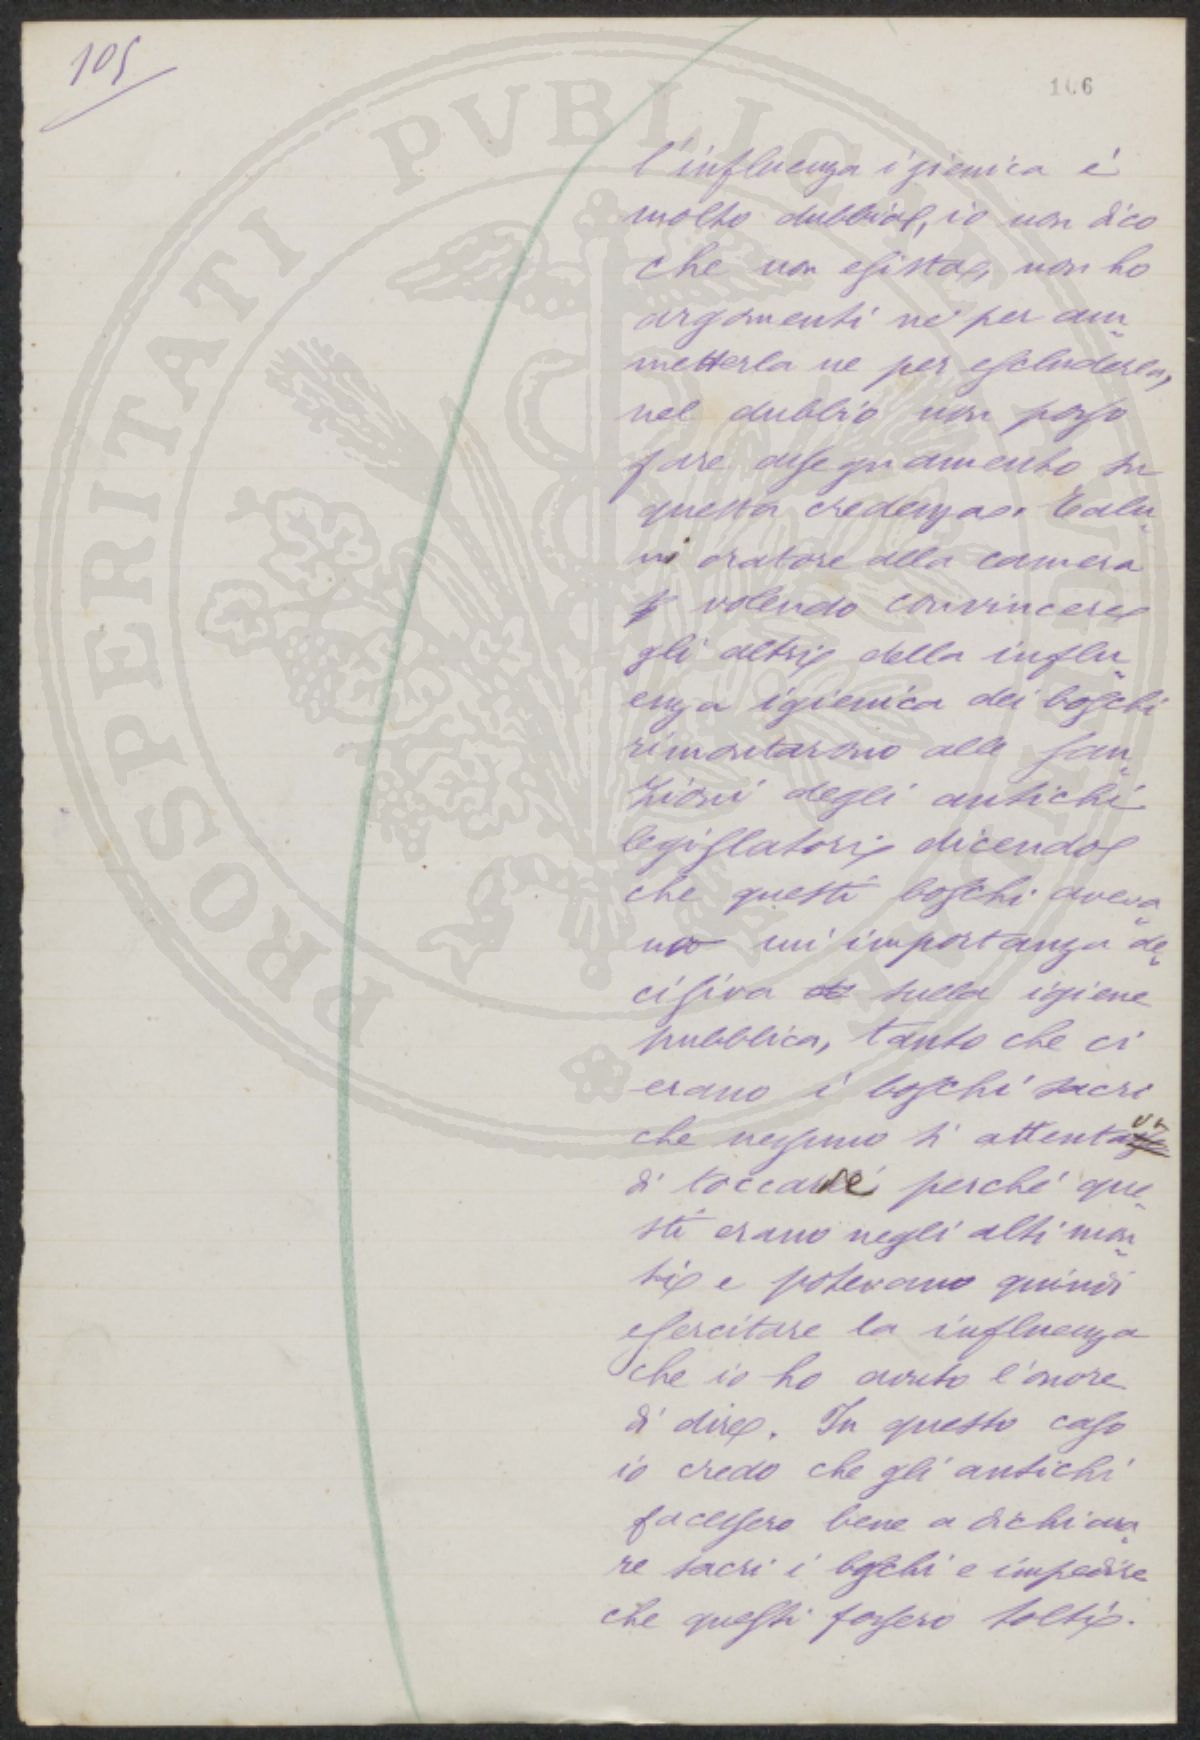 105
106
l'influenza igienica é
molto dubbia, io non dico
che non esista, non ho
argomenti né per am„
metterla ne per escluderla,
nel dubbio non posso
fare assegnamento su
questa credenza. Talu„
ni oratore alla camera
volendo convincere
gli altri della influ„
enza igienica dei boschi
rimontarono alle san„
zioni degli antichi
legislatori dicendo
che questi boschi aveva„
no un'importanza de„
cisiva sulla igiene
pubblica, tanto che ci
erano i boschi sacri
che nessuno si attentava
di toccare perché que„
sti erano negli alti mon„
ti e potevano quindi
esercitare la influenza
che io ho avuto l'onore
di dire. In questo caso
io credo che gli antichi
facessero bene a dichiara„
re sacri i boschi e impedire
che questi fossero tolti.
PROSPERITATI PVBLICAE